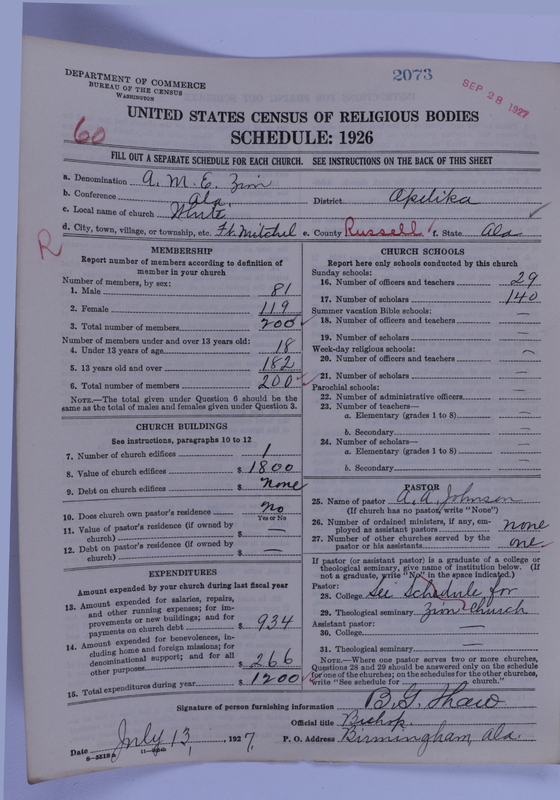 2073
SEP 28 1927
DEPARTMENT OF COMMERCE
BUREAU OF THE CENSUS
WASHINGTON
60
UNITED STATES CENSUS OF RELIGIOUS BODIES
SCHEDULE: 1926
FILL OUT A SEPARATE SCHEDULE FOR EACH CHURCH. SEE INSTRUCTIONS ON THE BACK OF THIS SHEET
a. Denomination A. M. E. Zion
b. Conference Ala. District Opelika
c. Local name of church White
d. City, town, village, or township, etc. Ft. Mitchel e. County Russell f. State Ala
R
MEMBERSHIP
Report number of members according to definition of
member in your church
Number of members, by sex:
1. Male 81
2. Female 119
3. Total number of members 200
Number of members under and over 13 years old:
4. Under 13 years of age 18
5. 13 years old and over 182
6. Total number of members 200
NOTE.—The total given under Question 6 should be the
same as the total of males and females given under Question 3.
CHURCH BUILDINGS
See instructions, paragraphs 10 to 12
7. Number of church edifices 1
8. Value of church edifices $ 1800
9. Debt on church edifices $ none
10. Does church own pastor's residence? No
Yes or No
11. Value of pastor's residence (if owned by
church) $ —
12. Debt on pastor's residence (if owned by
church) $ —
EXPENDITURES
Amount expended by your church during last fiscal year
13. Amount expended for salaries, repairs,
and other running expenses; for im-
provements or new buildings; and for
payments on church debt $ 934
14. Amount expended for benevolences, in-
cluding home and foreign missions; for
denominational support; and for all
other purposes $ 266
15. Total expenditures during year $ 1200
CHURCH SCHOOLS
Report here only schools conducted by this church
Sunday schools:
16. Number of officers and teachers 29
17. Number of scholars 140
Summer vacation Bible schools:
18. Number of officers and teachers —
19. Number of scholars —
Week-day religious schools:
20. Number of officers and teachers —
21. Number of scholars —
Parochial schools:
22. Number of administrative officers —
23. Number of teachers—
a. Elementary (grades 1 to 8) —
b. Secondary —
24. Number of scholars—
a. Elementary (grades 1 to 8) —
b. Secondary —
PASTOR
25. Name of pastor A. A. Johnson
(If church has no pastor, write "None")
26. Number of ordained ministers, if any, em-
ployed as assistant pastors none
27. Number of other churches served by the
pastor or his assistants one
If pastor (or assistant pastor) is a graduate of a college or
theological seminary, give name of institution below. (If
not a graduate, write "No" in the space indicated.)
Pastor:
28. College See Schedule for
29. Theological seminary Zion Church
Assistant pastor:
30. College —
31. Theological seminary —
NOTE.—Where one pastor serves two or more churches,
Questions 28 and 29 should be answered only on the schedule
for one of the churches; on the schedules for the other churches,
write "See schedule for church."
Signature of person furnishing information B. G. Shaw
Official title Bishop
Date July 13, 1927. P. O. Address Birmingham, Ala.